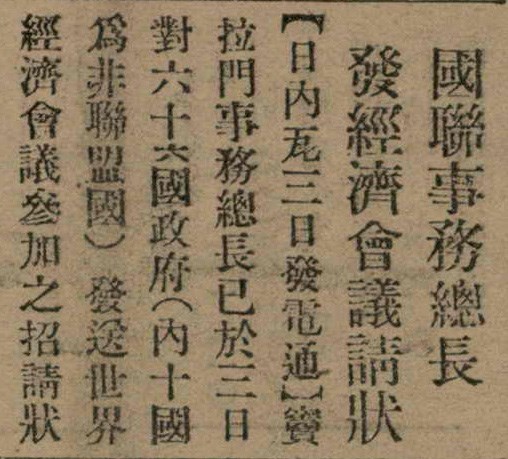 國聯事務總長
發經濟會議請狀
【日內瓦三日發電通】竇
拉門事務總長已於三日
對六十六國政府（內十國
爲非聯盟國）發送世界
經濟會議參加之招請狀